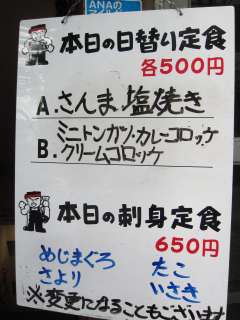 ANAの
本日の日替り定食
各500円
A. さんま塩焼き
ミニトンカツ・カレーコロッケ
B. クリームコロッケ
本日の刺身定食
650円
めじまぐろ たこ
さより いさき
※変更になることもございます